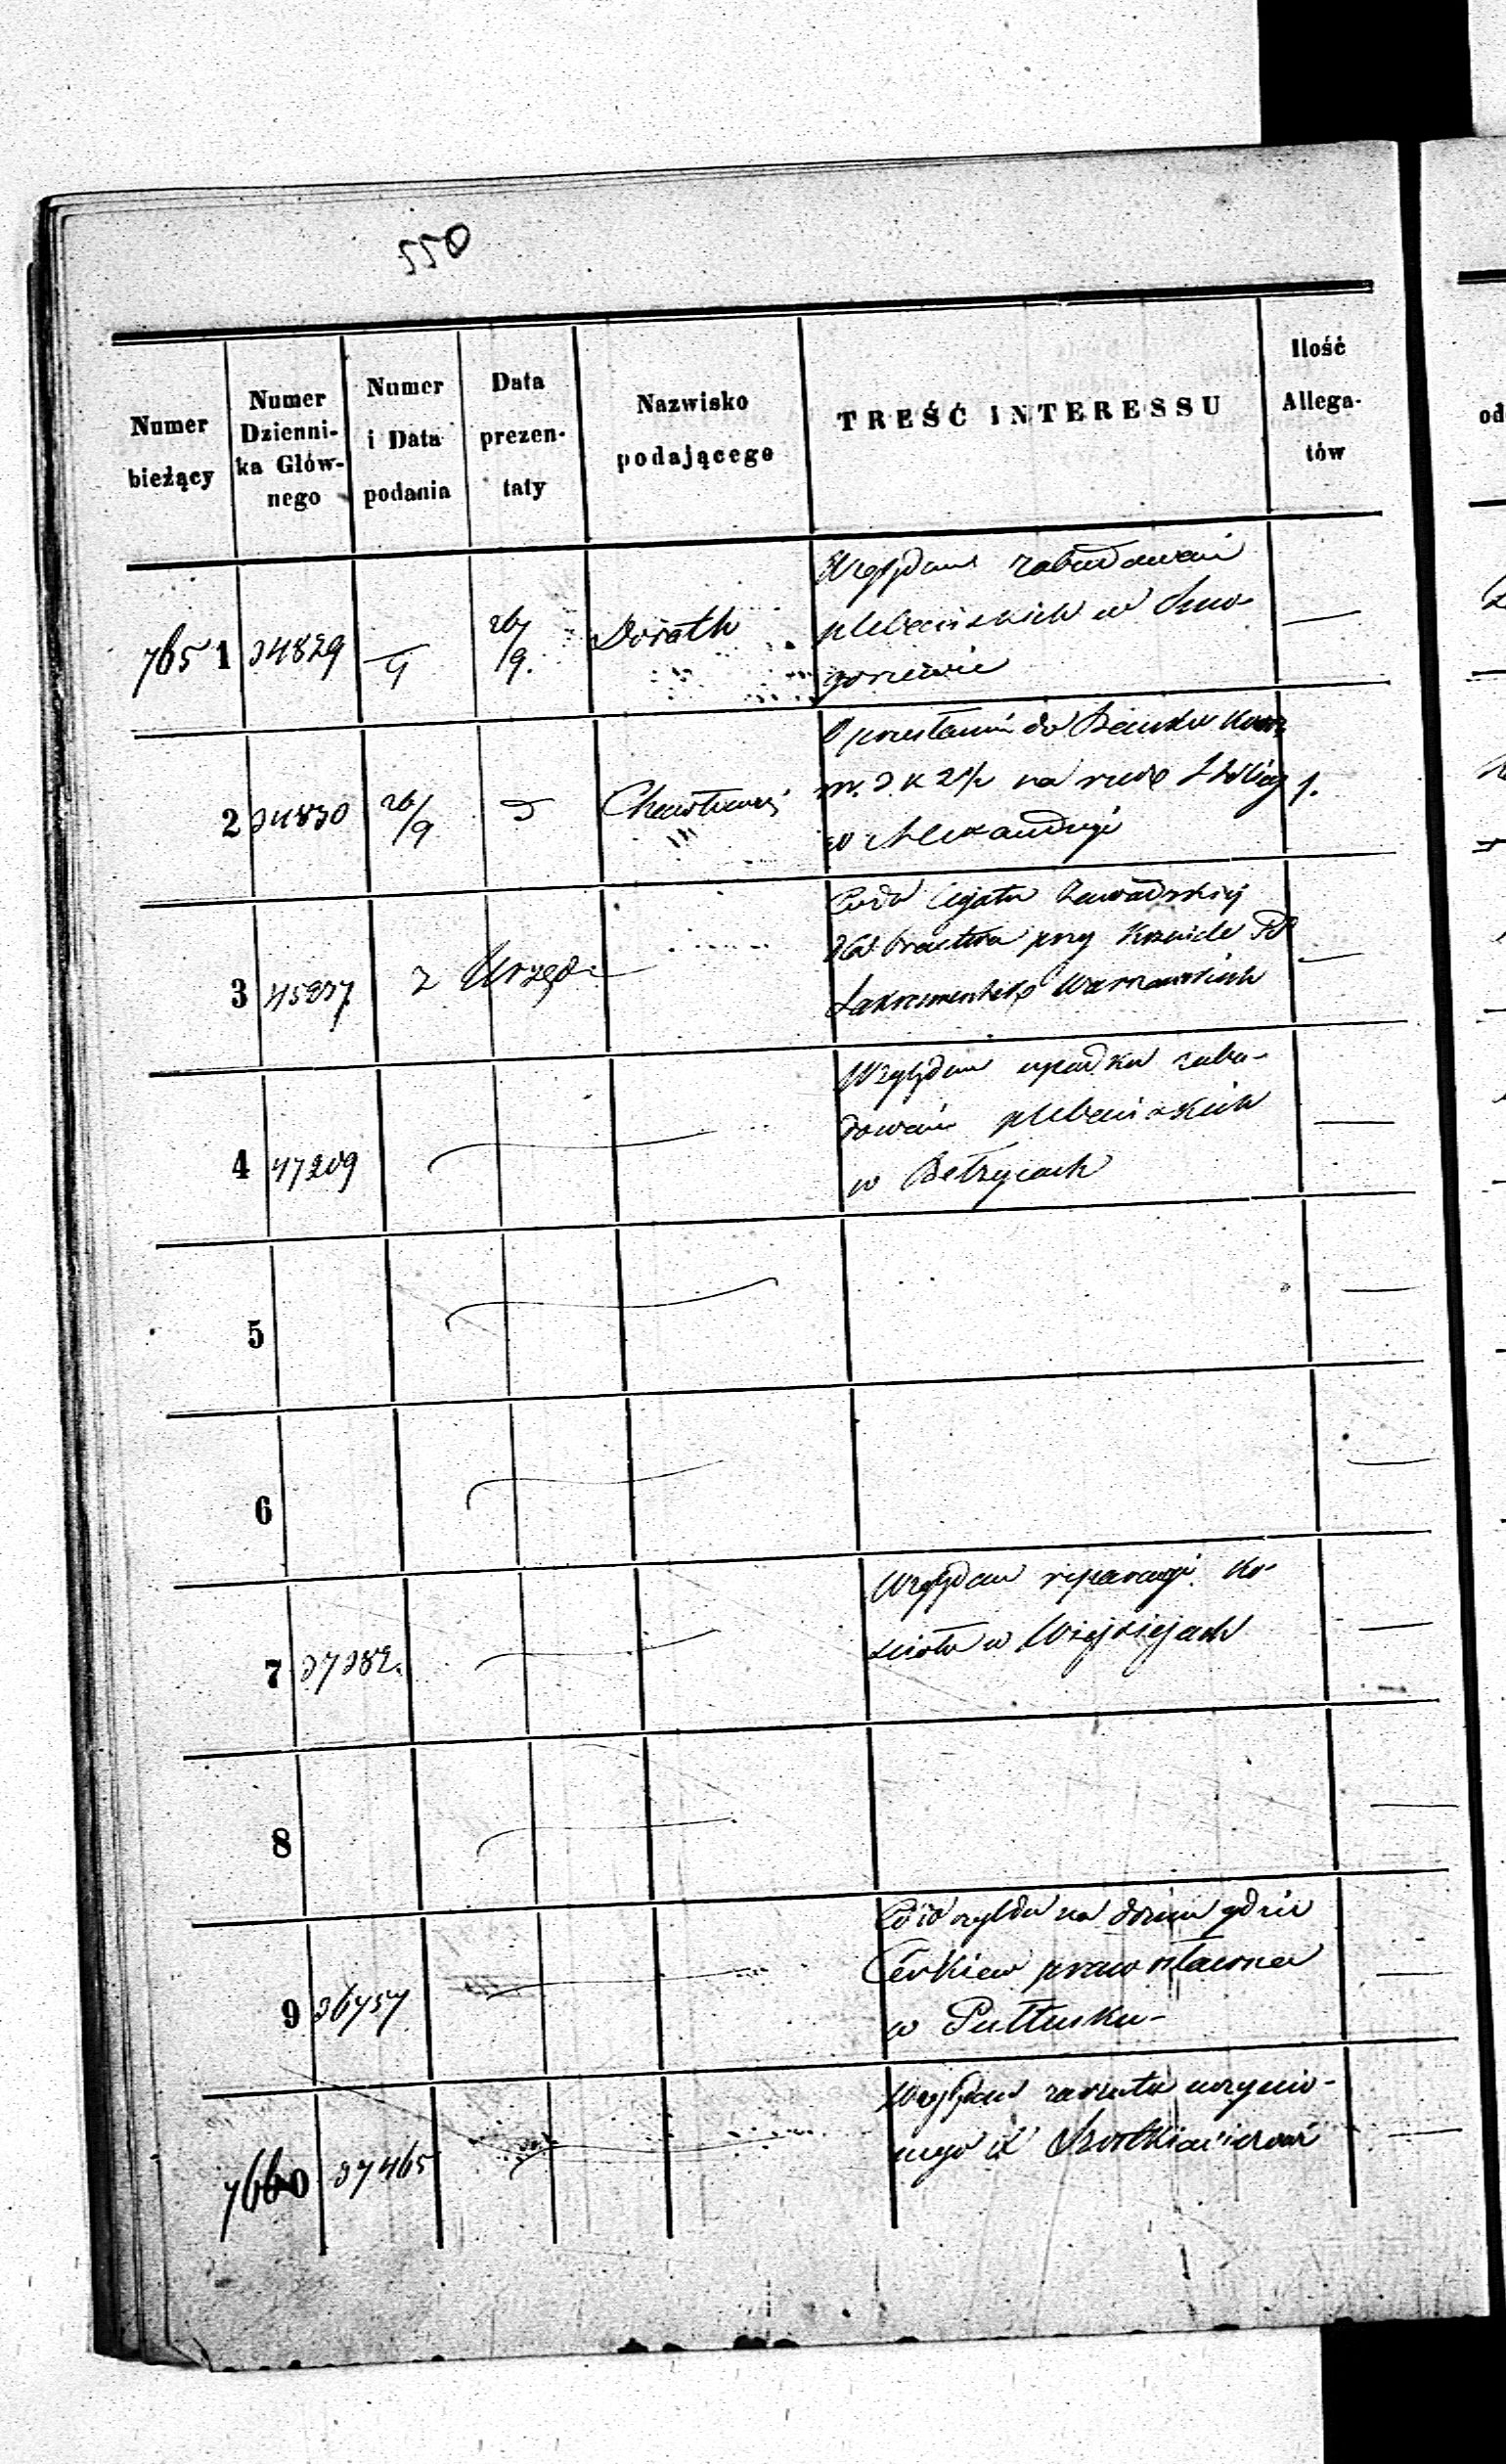 550
Numer bieżący
Numer Dzienni-ka Głów-nego
Numer i Data podania
Data prezen-taty
Nazwisko podającego
TREŚĆ INTERESSU
Ilość Allega-tów
od
7651 34829 26/9. Dorath Względem zabudowań
plebańskich w
—
2 34830 26/9 Chwa
O przesłaniu do Banku
na rzecz
w Alexandryi
1.
3 45237 z Urzędu
Co do legatu Zawadzkiej
dla bractwa przy Kościele PP
Sakramentek Warszawskich
—
4 47209
Względem upadku zabu-
dowań plebańskich
w Bełżycach
—
5
—
6
—
7 37382.
Względem reparacyi Ko-
ścioła w Wiejsiejach
—
8
—
9 36757
Co do szyldu na domu gdzie
Cerkiew prawosławna
w Pułtusku-
—
7660 37465
Względem zarzutu uczynio-
nego X
—